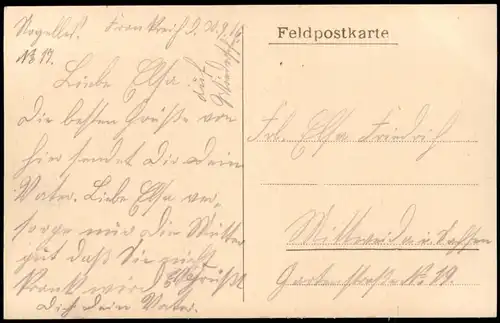 Nogelles. Frankreich D. 20.9.16.
No 17.
Liebe Elsa
Die besten Grüße von
hier sendet Dir Dein
Vater. Liebe Elsa ver-
sorge mir die Mutter
gut daß Sie nicht
krank wird es Grüßt
Dich Dein Vater.
Feldpostkarte
Frl. Elsa Friedrich
Mittweida i. Sachsen
Gartenstraße No 19.